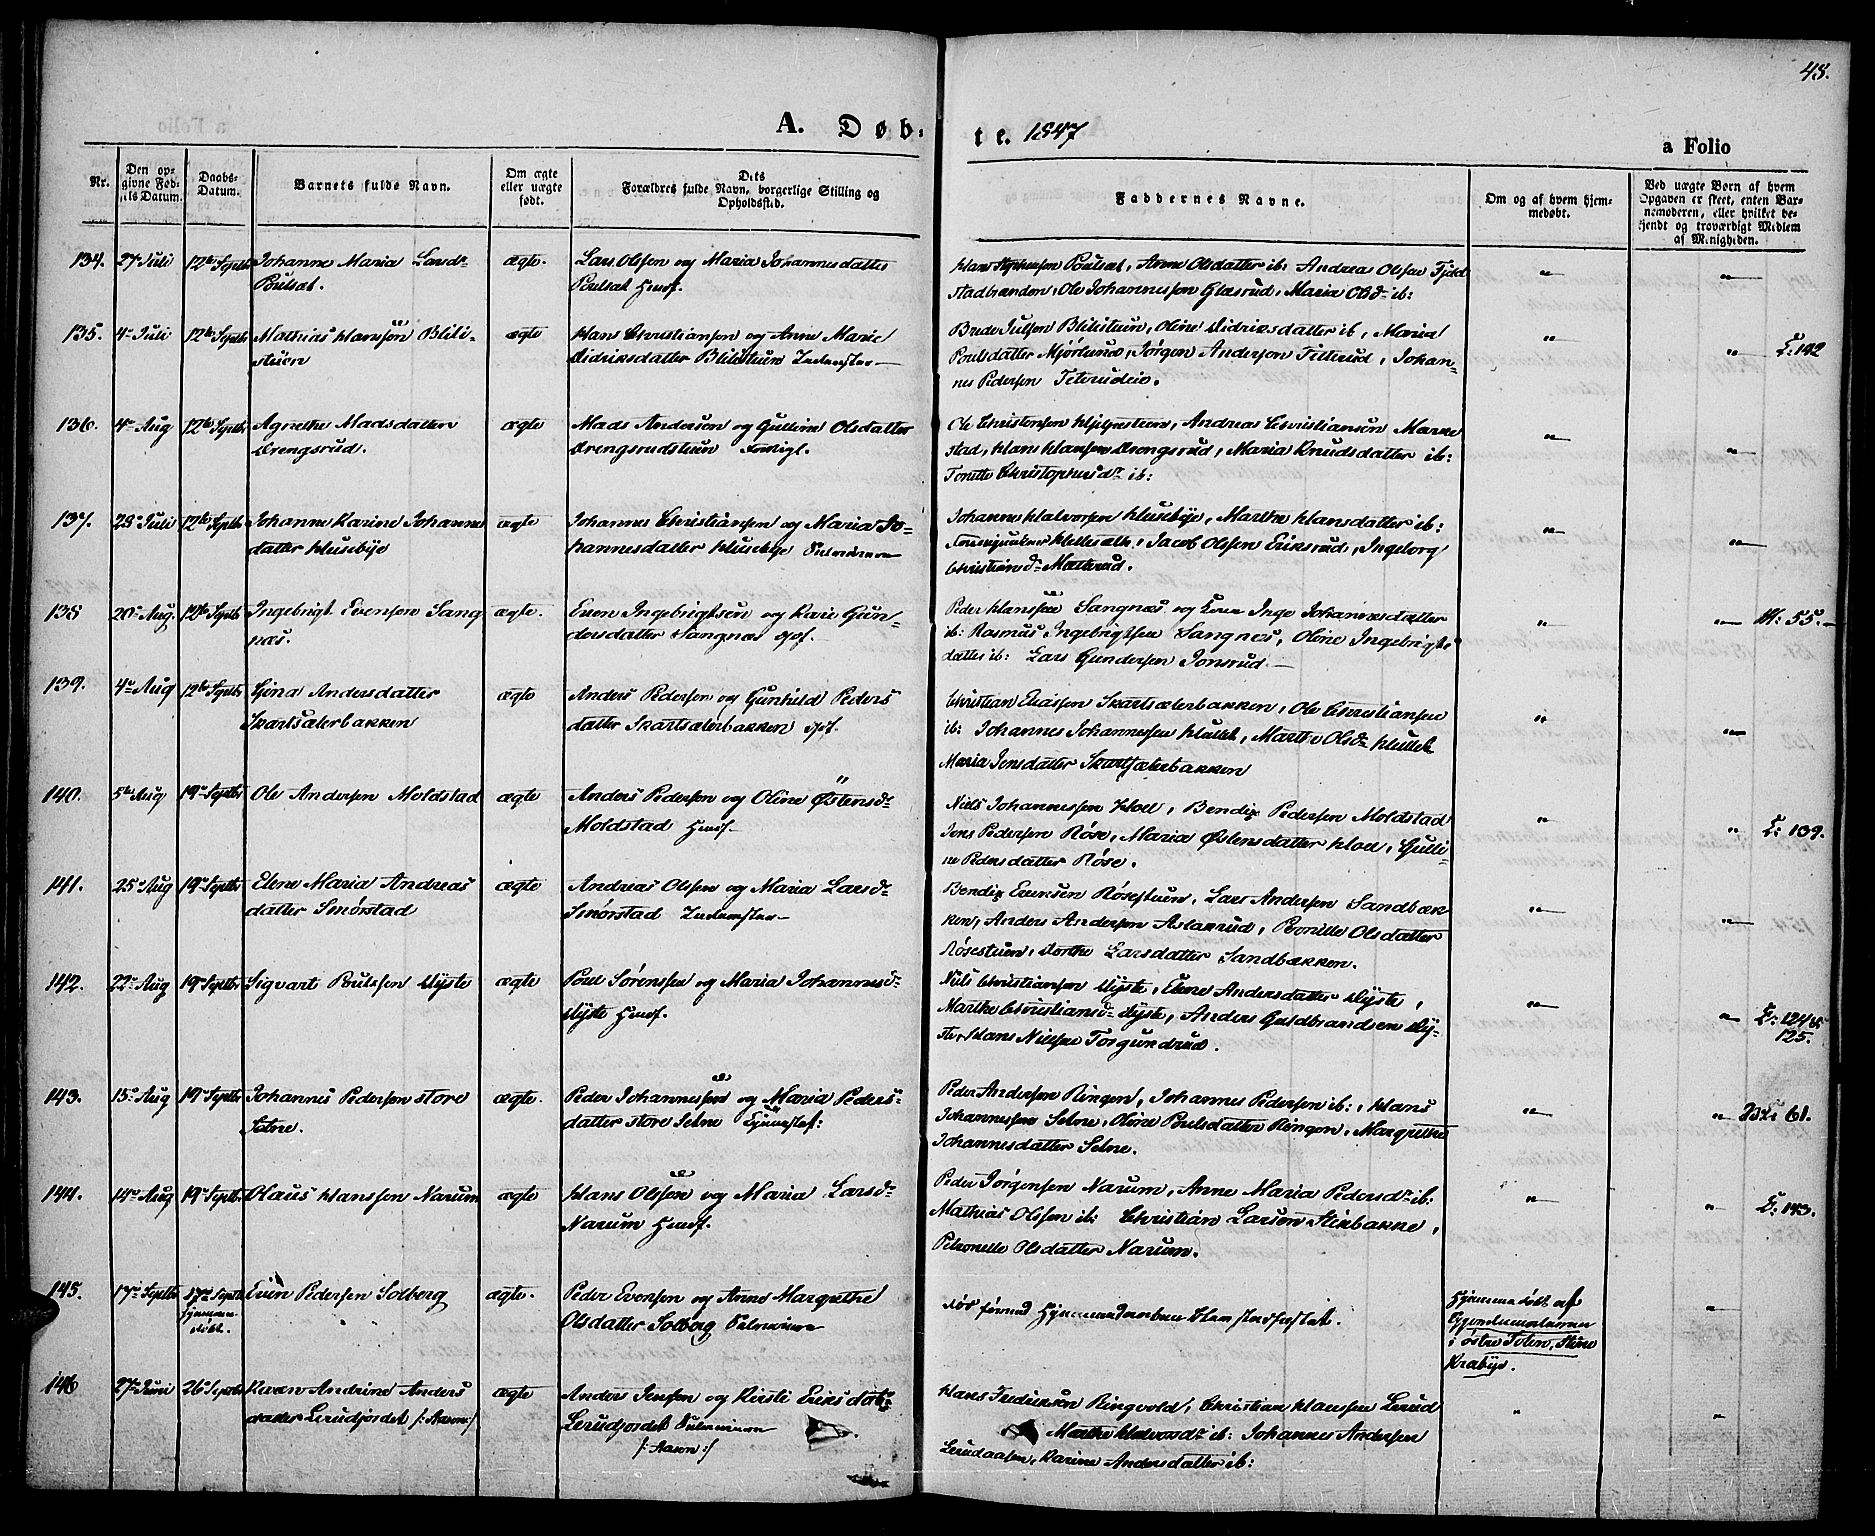 48.
A. Døb-
te. 1847
a Folio
Nr.
Den op-
givne Fød-
sels Datum.
Daabs-
Datum.
Barnets fulde Navn.
Om ægte
eller uægte
født.
Dets
Forældres fulde Navn, borgerlige Stilling og
Opholdssted.
Faddernes Navne.
Om og af hvem hjem-
medøbt.
Ved uægte Børn af hvem
Opgaven er skeet, enten Bar-
nemoderen, eller hvilket be-
kjendt og troværdigt Medlem
af Menigheden.
134. 27 Juli 12te Septbr Johanne Maria Larsdr ægte. Lars Olsen og Maria Johannesdatter
Poulsat. Poulsat Huusf.
Hans Stephensen Poulsat, Anne Olsdatter ib: Andreas Olsen Fjeld
stadbranden, Ole Johannessen Glæsrud, Maria Olsdr ib:
135. 4de Juli 12te Septbr Mathias Hanssøn Blili- ægte Hans Christiansen og Anne Marie
stuen Didriksdatter Blilistuen Inderster
Brede Julsen Blilistuen, Oline Didriksdatter ib, Maria
Poulsdatter Mjørlund, Jørgen Andersen Fitterud, Johan-
nes Pedersen Teterudeie. L: 142
136. 4de Aug 12te Septbr Agnethe Madsdatter ægte Mads Andersen og Gulline Olsdatter
Drengsrud. Drengsrudstuen
Ole Christensen Hjelpestuen, Andreas Christiansen Marke
stad, Hans Hansen Drengsrud, Maria Knudsdatter ib:
Tonette Christophersdr ib:
137. 28de Juli 12te Septbr Johanne Karine Johanne ægte Johannes Christiansen og Maria Jo-
datter Huseby hannesdatter Huseby
Johanne Halvorsen Husebye, Marthe Hansdatter ib:
Jacob Olssen Eriksrud, Ingeborg
Christiansdr Mæhlrud.
138 20de Aug. 12te Septbr Ingebrigt Evensen Sang ægte. Even Ingebrigtsen og Kari Gun-
næs. dersdatter Sangnæs
Peder Hanssen Sangnæs og Kone Inge Johannesdatter
ib: Rasmus Ingebrigtsen Sangnæs, Oline Ingebrigts
datter ib: Lars Gundersen Jonsrud. M: 55.
139. 4de Aug 12te Septbr Gina Andersdatter ægte Anders Pedersen og Gunhild Peders
Skartsæterbakken datter Skartsæterbakken
Christian Eliassen Skartsæterbakken, Ole Christiansen
ib: Johannes Johannessen Hullet, Marthe Olsdr Hullet
Maria Jensdatter Skartsæterbakken
140. 5te Aug 19de Septbr Ole Andersen Moldstad ægte Anders Pedersen og Oline Østensdr
Moldstad Huusf.
Niels Johannessen Hoel, Bendix Pedersen Moldstad
Jens Pedersen Røse, Maria Østensdatter Hoel, Gulli-
ne Pedersdatter Røse. L: 139.
141. 25de Aug 19de Septbr Elene Maria Andreas ægte Andreas Olsen og Maria Larsdr
datter Smørstad Smørstad Inderster
Bendix Eriksen Røsestuen, Lars Andersen Sandbæk-
ken, Anders Andersen Aslakrud, Pernille Olsdatter
Røsestuen, Dorthe Larsdatter Sandbækken.
142. 22de Aug 19de Septbr Sigvart Poulsen Dyste ægte Poul Sørenssen og Maria Johannesdr
Dyste Huusf.
Niels Christiansen Dyste, Elene Andersdatter Dyste,
Marthe Christiansdr Dyste, Anders Guldbrandsen Dy-
ste, Hans Nielsen Torgundrud. L: 124 &
125.
143. 15de Aug 19de Septbr Johannes Pedersen store ægte. Peder Johannessen og Maria Peders-
Selne. datter store Selne
Peder Andersen Ringen, Johannes Pedersen ib:, Hans
Johannessen Selne, Oline Poulsdatter Ringen, Margrethe
Johannesdatter Selne. 61.
144. 14de Aug 19de Septbr Olaus Hanssen Narum ægte Hans Olsen og Maria Larsdr
Narum Huusf.
Peder Jørgensen Narum, Anne Maria Pedersdr ib:
Mathias Olssen ib: Christian Larsen Stixbakke,
Petronelle Olsdatter Narum. L: 143.
145. 17de Septbr 17de Septbr Even Pedersen Solberg ægte. Peder Evensen og Anne Margrethe
Hjemme-
døbt. Olsdatter Solberg
Død førend Hjemmedaaben blev stadfæstet.
Hjemmedøbt af
i østre Toten, Stine
Krabye.
146 27de Juni 26de Septbr Karen Andrine Anders ægte Anders Jensen og Kirsti Eriksdatr
datter Lerudjordet /: Aasen :/ Lerudjordet
/: Aasen :/
Hans Fredriksen Ringvold, Christian Hansen Lerud
Marthe Halvorsdr ib: Johannes Andersen
Lerudaasen, Karine Andersdatter ib: